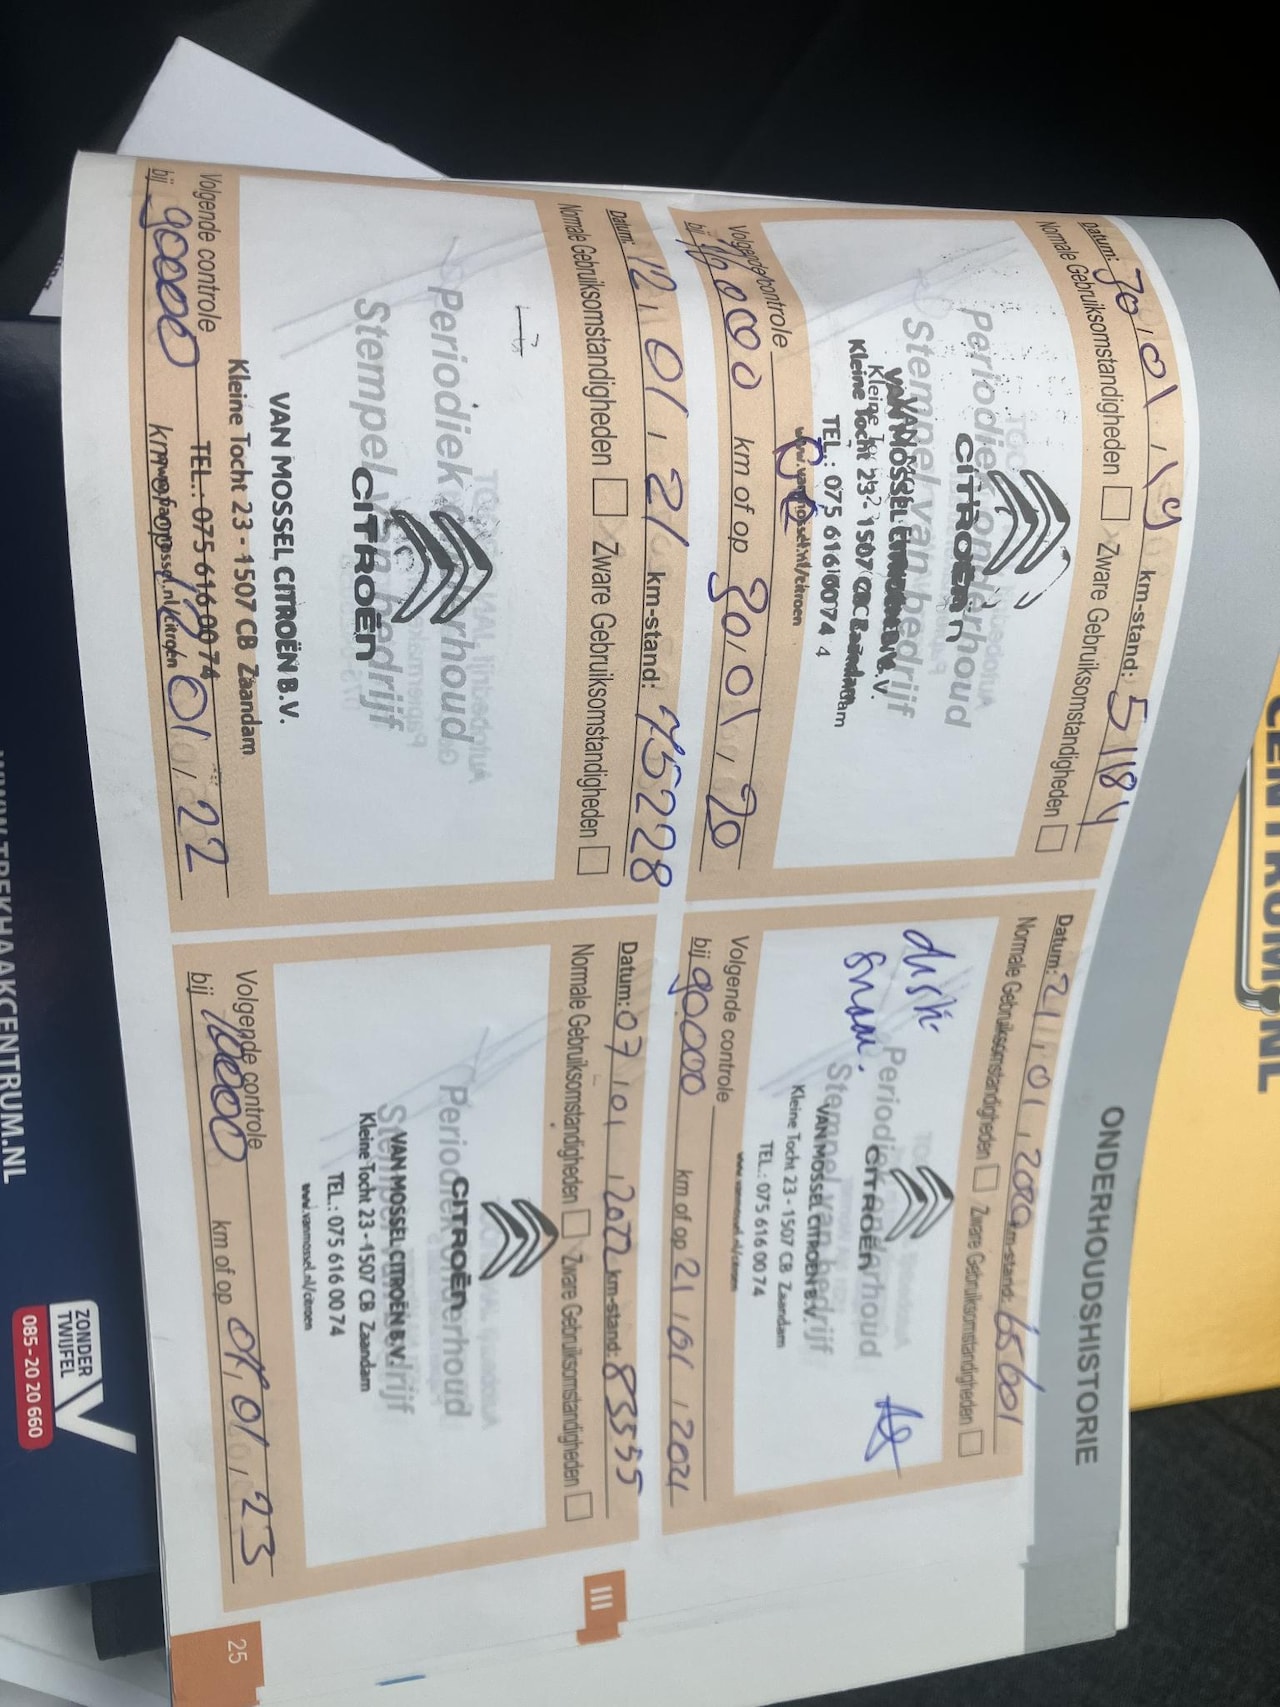 ONDERHOUDSHISTORIE
Datum: 30, 01, 19 km-stand: 51184
Normale Gebruiksomstandigheden Zware Gebruiksomstandigheden
Periodiek onderhoud
Stempel van bedrijf
CITROËN
VAN MOSSEL CITROËN B.V.
Kleine Tocht 23 - 1507 CB Zaandam
TEL.: 075 616 00 74
www.vanmossel.nl/citroen
Volgende controle
bij 000 km of op 30, 01, 20
Datum: 21, 01, 2020 km-stand: 65601
Normale Gebruiksomstandigheden Zware Gebruiksomstandigheden
Periodiek onderhoud
Stempel van bedrijf
CITROËN
VAN MOSSEL CITROËN B.V.
Kleine Tocht 23 - 1507 CB Zaandam
TEL.: 075 616 00 74
www.vanmossel.nl/citroen
Volgende controle
bij 90.000 km of op 21, 01, 2021
Datum: 12, 01, 21 km-stand: 75228
Normale Gebruiksomstandigheden Zware Gebruiksomstandigheden
Periodiek onderhoud
Stempel van bedrijf
CITROËN
VAN MOSSEL CITROËN B.V.
Kleine Tocht 23 - 1507 CB Zaandam
TEL.: 075 616 00 74
www.vanmossel.nl/citroen
Volgende controle
bij 90000 km of op 12, 01, 22
Datum: 07, 01, 2022 km-stand: 83555
Normale Gebruiksomstandigheden Zware Gebruiksomstandigheden
Periodiek onderhoud
Stempel van bedrijf
CITROËN
VAN MOSSEL CITROËN B.V.
Kleine Tocht 23 - 1507 CB Zaandam
TEL.: 075 616 00 74
www.vanmossel.nl/citroen
Volgende controle
bij km of op 01, 23
III
25
CENTRUM.NL
WWW.TREKHAAKCENTRUM.NL
ZONDER
TWIJFEL
085 - 20 20 660